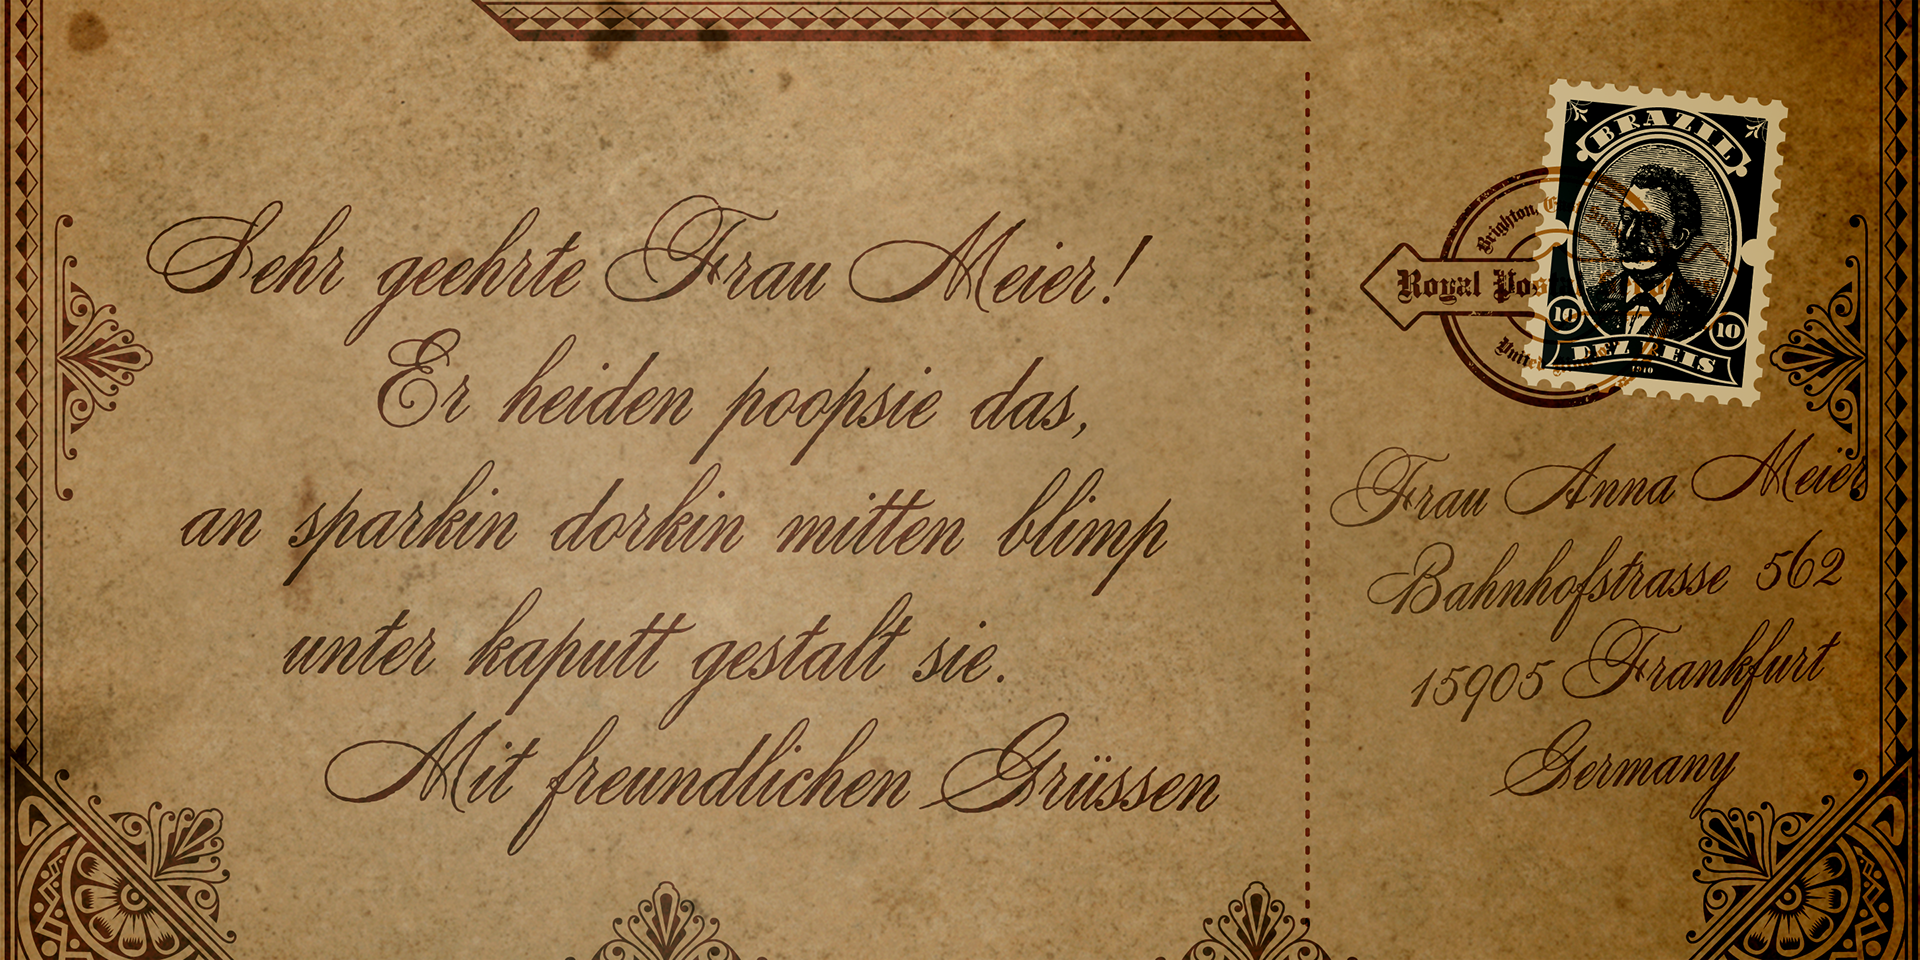 Sehr geehrte Frau Meier!
Er heiden poopsie das,
an sparkin dorkin mitten blimp
unter kaputt gestalt sie.
Mit freundlichen Grüssen
BRAZIL
Brighton,
Royal
10
10
DEZ REIS
1910
Frau Anna Meier
Bahnhofstrasse 562
15905 Frankfurt
Germany